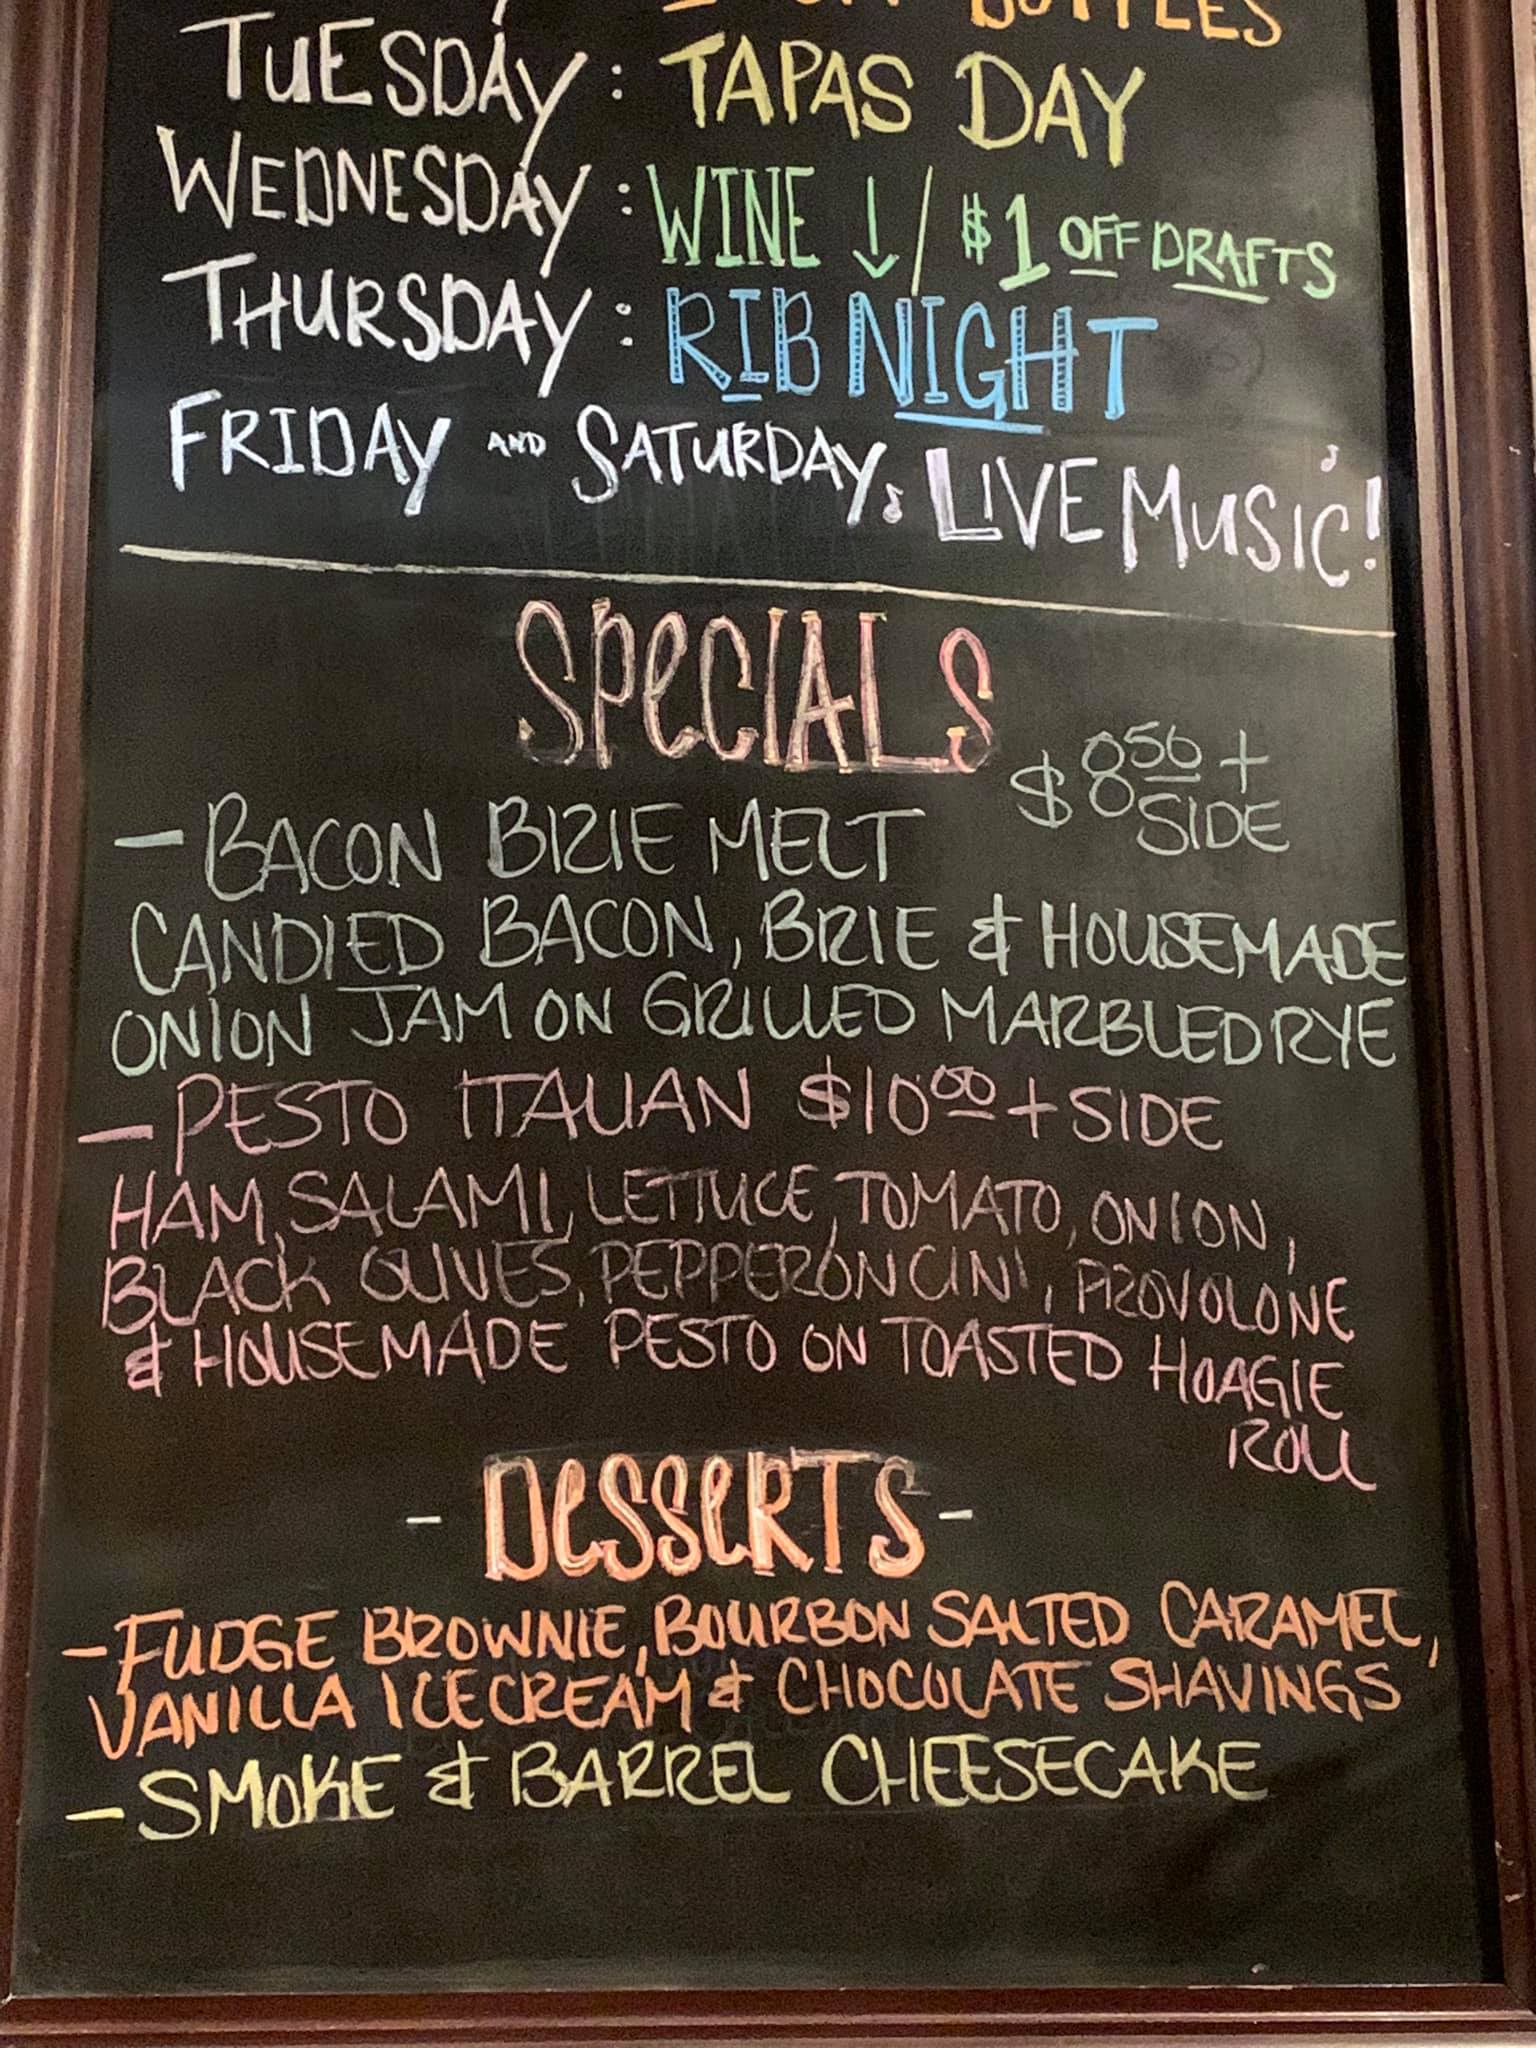 BOTTLES
TUESDAY : TAPAS DAY
WEDNESDAY : WINE ↓ / $1 OFF DRAFTS
THURSDAY : RIB NIGHT
FRIDAY AND SATURDAY ♪ LIVE MUSIC! ♪
SPECIALS
$8.50 + SIDE
- BACON BRIE MELT
CANDIED BACON, BRIE & HOUSEMADE
ONION JAM ON GRILLED MARBLED RYE
- PESTO ITALIAN $10.00 + SIDE
HAM, SALAMI, LETTUCE, TOMATO, ONION,
BLACK OLIVES, PEPPERONCINI, PROVOLONE
& HOUSEMADE PESTO ON TOASTED HOAGIE
ROLL
- DESSERTS -
- FUDGE BROWNIE, BOURBON SALTED CARAMEL,
VANILLA ICE CREAM & CHOCOLATE SHAVINGS
- SMOKE & BARREL CHEESECAKE